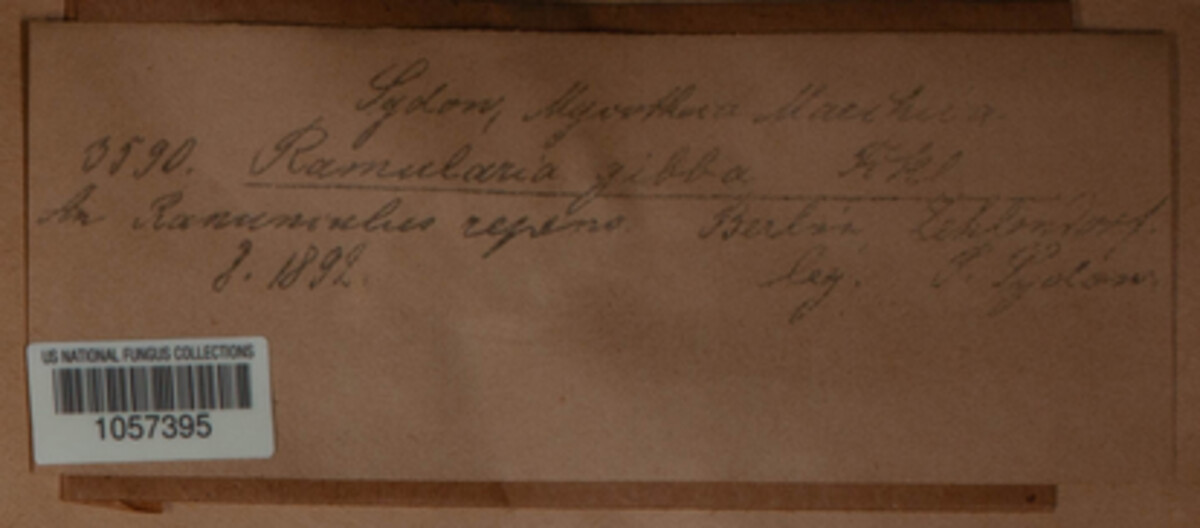 Sydow, Mycotheca Marchica.
3590. Ramularia gibba Fckl
An Ranunculus repens Berlin Zehlendorf.
8. 1892. leg. P. Sydow.
US NATIONAL FUNGUS COLLECTIONS
1057395